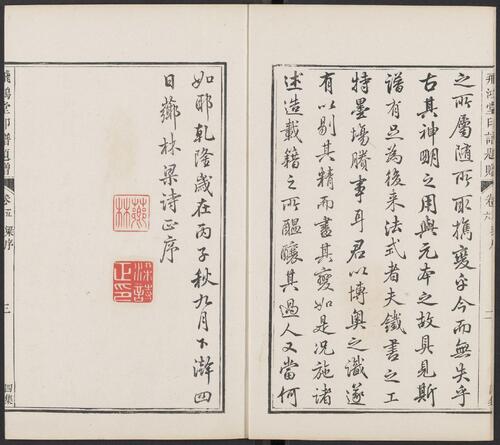 之所屬隨所取攜變乎今而無失乎
古其神明之用與元本之故具見斯
譜有足為後来法式者夫鐵書之工
特墨塲賸事耳君以博奧之識遂
有以剔其精而盡其變如是况施諸
述造載籍之所醖釀其過人又當何
如耶乾隆歲在丙子秋九月下澣四
日薌林梁詩正序
薌林
梁詩正印
飛鴻堂印譜題贈
卷五
梁序
三
四集